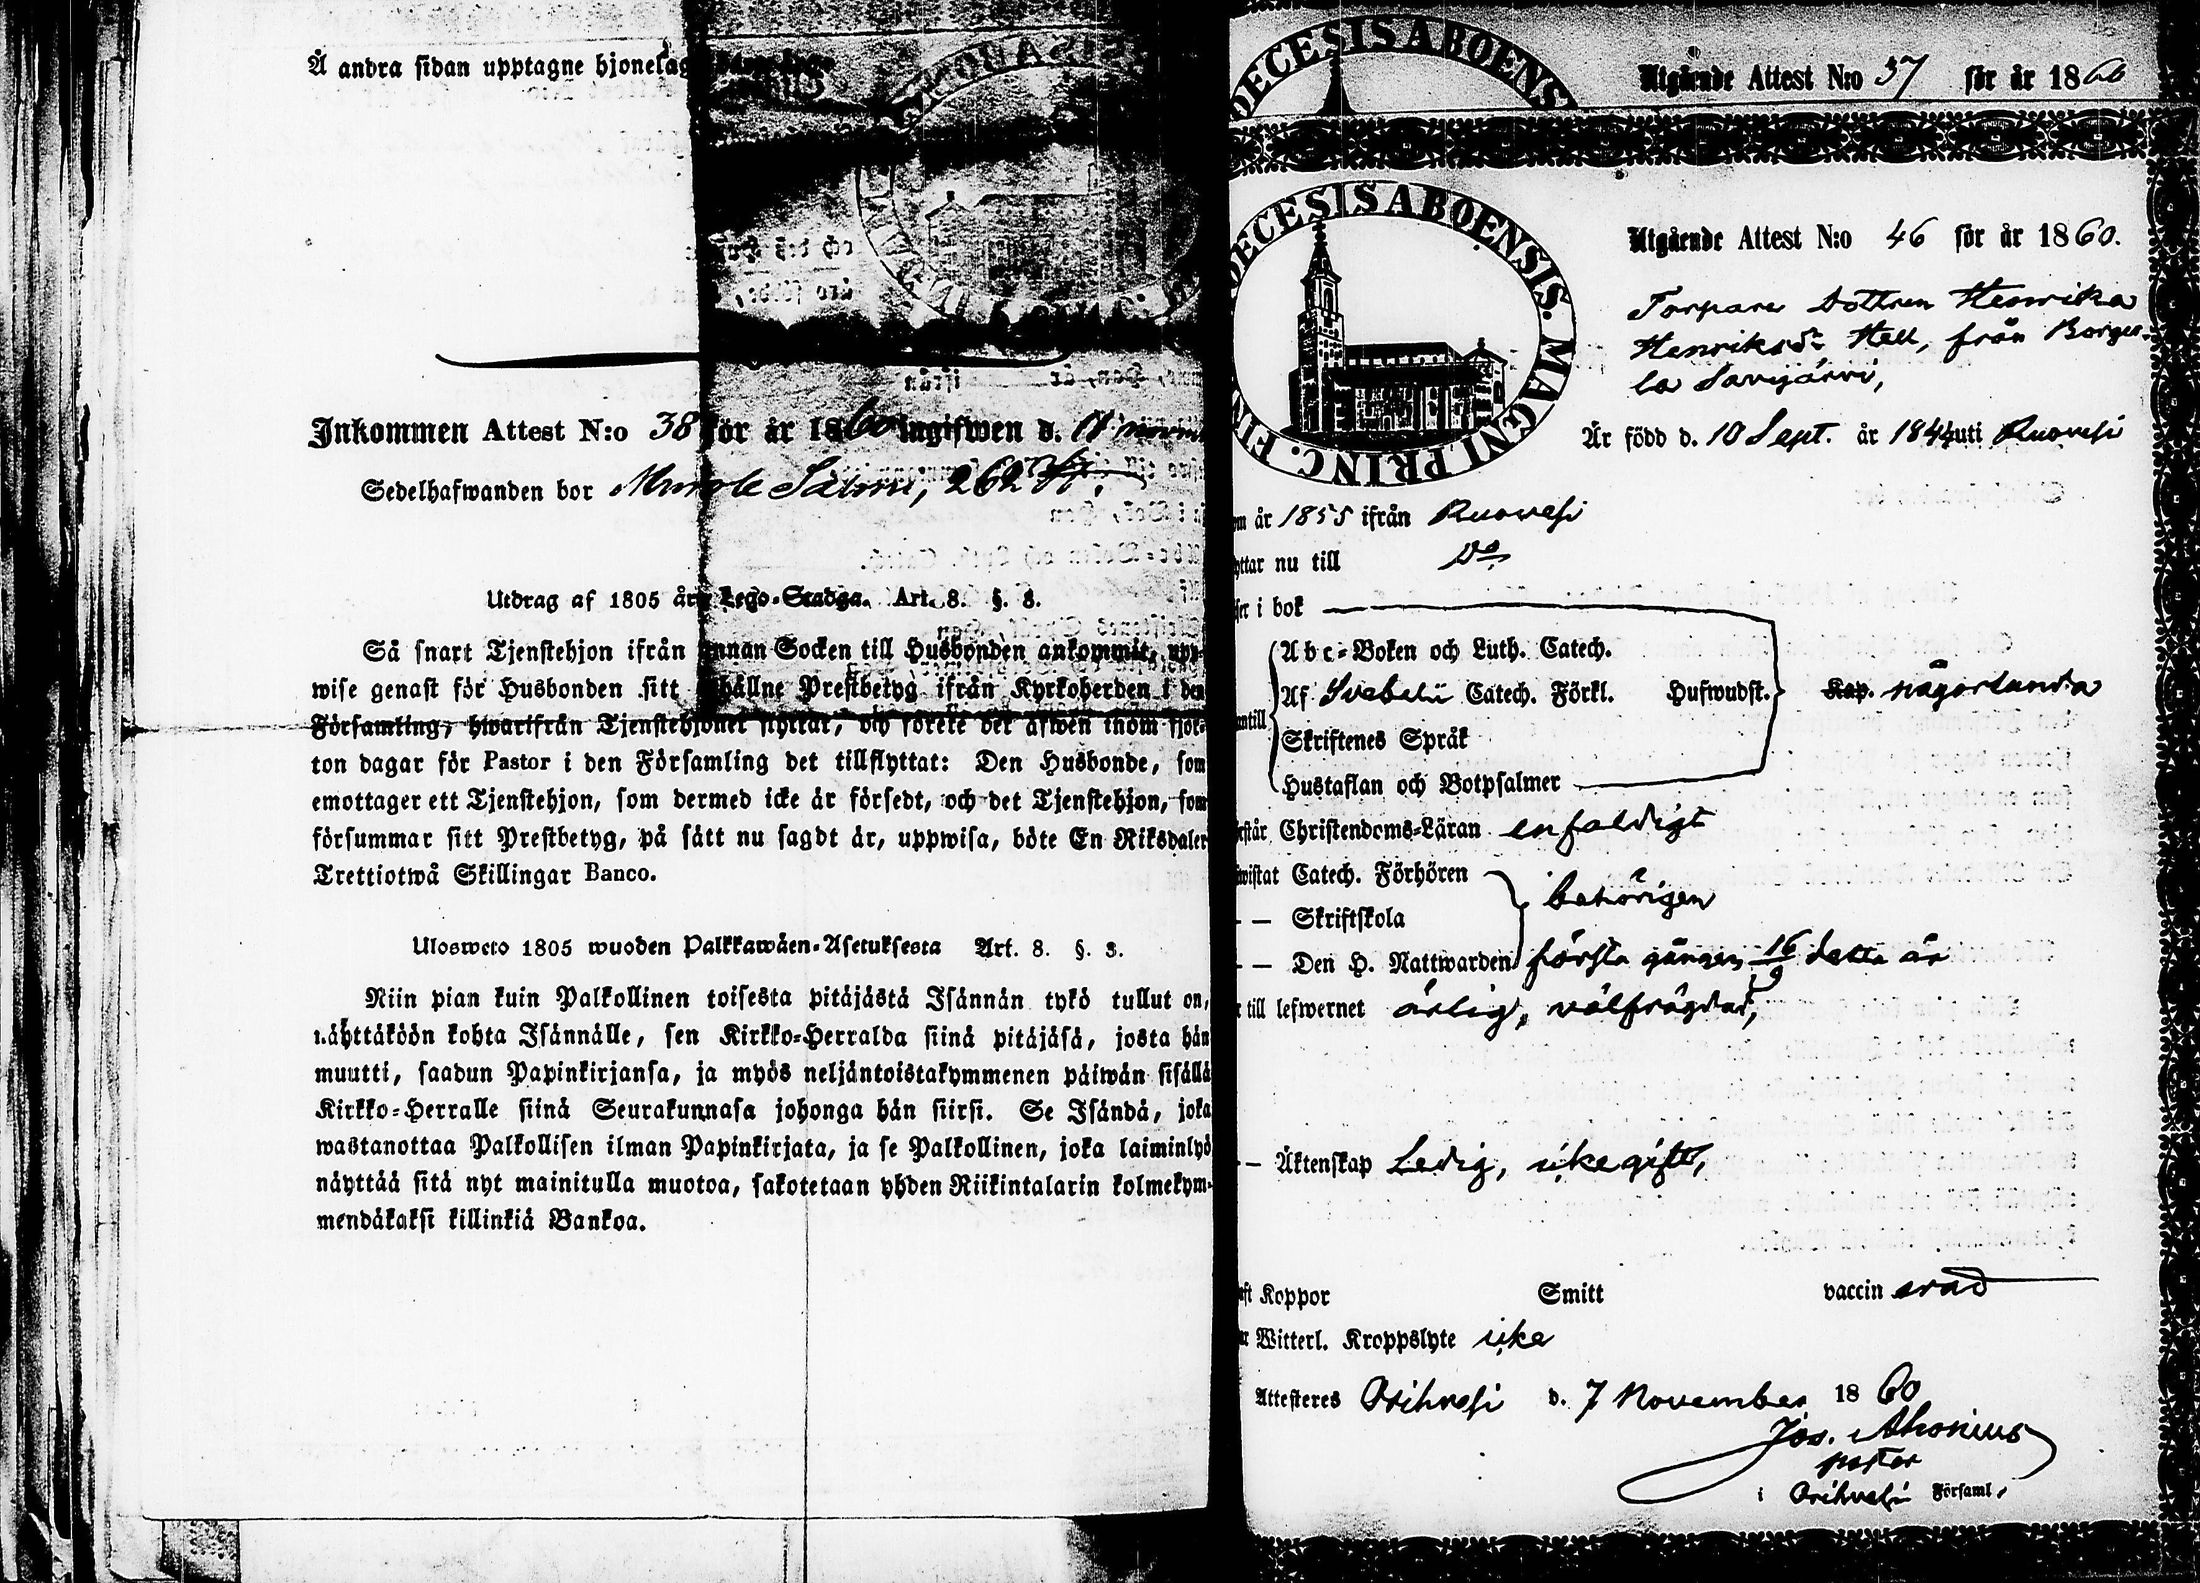 Å andra sidan upptagne hjonelag
Inkommen Attest N:o 38 för år 1860 ingifwen d. 11
Sedelhafwanden bor Murole Salmi, 262
Utdrag af 1805 års Lego-Stadga. Art. 8. §. 3.
Så snart Tjenstehjon ifrån annan Socken till Husbonden ankommit, upp-
wise genast för Husbonden sitt erhållne Prestbetyg ifrån Kyrkoherden i den
Församling, hwarifrån Tjenstehjonet flyttat, och förete det äfwen inom fjor-
ton dagar för Pastor i den Församling det tillflyttat: Den Husbonde, som
emottager ett Tjenstehjon, som dermed icke är försedt, och det Tjenstehjon, som
försummar sitt Prestbetyg, på sätt nu sagdt är, uppwisa, böte En Riksdaler
Trettiotwå Skillingar Banco.
Ulosweto 1805 wuoden Palkkawäen-Asetuksesta Art. 8. §. 3.
Niin pian kuin Palkollinen toisesta pitäjästä Isännän tykö tullut on,
näyttäköön kohta Isännälle, sen Kirkko-Herralda siinä pitäjäsä, josta hän
muutti, saadun Papinkirjansa, ja myös neljäntoistakymmenen päiwän sisällä
Kirkko-Herralle siinä Seurakunnasa johonga hän siirsi. Se Isändä, joka
wastanottaa Palkollisen ilman Papinkirjata, ja se Palkollinen, joka laiminlyö
näyttää sitä nyt mainitulla muotoa, sakotetaan yhden Riikintalarin kolmekym-
mendäkaksi killinkiä Bankoa.
DECESIS ABOENS
Utgående Attest N:o 37 för år 1860
DECESIS ABOENSIS. MAGNI PRINC. FIN
Utgående Attest N:o 46 för år 1860.
Torpare Dottren Henrika
Henriksdr Hell, från Borges-
la Savijärvi,
Är född d. 10 Sept. år 1844 uti Ruovesi
om år 1855 ifrån Ruovesi
yttar nu till Do
ser i bok
Abc-Boken och Luth. Catech.
Af Svebelii Catech. Förkl. Hufwudst. Kap. någorlunda
antill
Skriftenes Språk
Hustaflan och Botpsalmer
rstår Christendoms-Läran enfaldigt
wistat Catech. Förhören
behörigen
— — Skriftskola
— — Den H. Nattwarden första gången 16/9 detta år
r till lefwernet ärlig, välfrägdad,
— — Äktenskap Ledig, icke gift,
aft Koppor Smitt vaccinerad
ar Witterl. Kroppslyte icke
Attesteres Orihvesi d. 7 November 1860
Jos. Ahonius
pastor
i Orihvesi Församl.